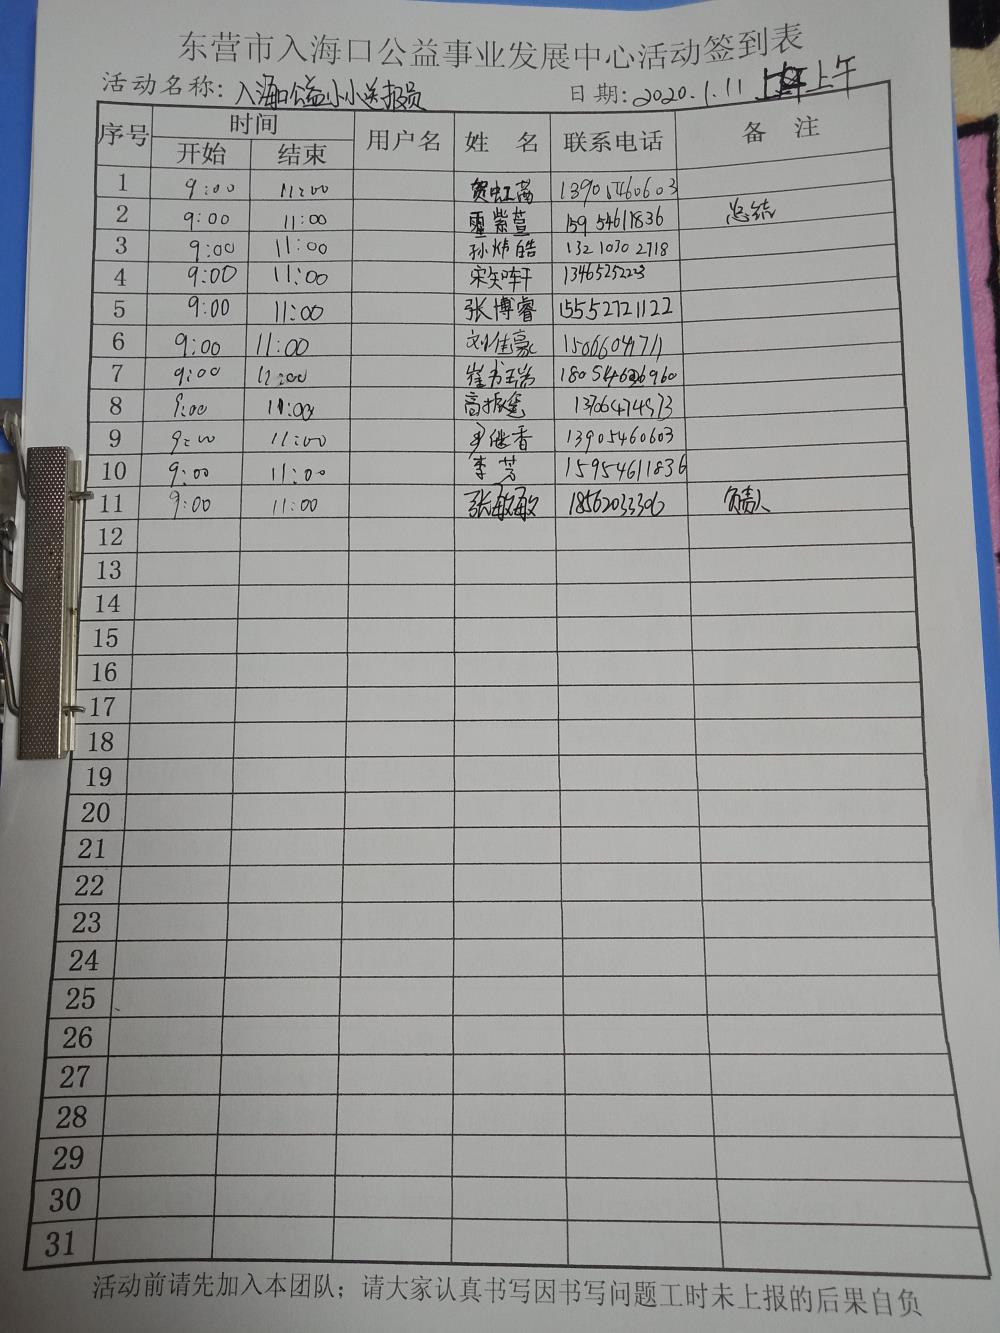 东营市入海口公益事业发展中心活动签到表
活动名称: 入海口公益小小送报员 日期: 2020.1.11 上午
序号 时间 用户名 姓 名 联系电话 备 注
开始 结束
1 9:00 11:00 贺虹菡 13905460603
2 9:00 11:00 紫萱 15954611836 总结
3 9:00 11:00 孙炜皓 13210302718
4 9:00 11:00 宋知轩 13465252223
5 9:00 11:00 张博睿 15552721122
6 9:00 11:00 刘佳豪
7 9:00 11:00 崔书瑞
8 9:00 11:00 高振
9 9:00 11:00 尹继香 13905460603
10 9:00 11:00 李芳 15954611836
11 9:00 11:00 张敏敏 18562033306 负责人
12
13
14
15
16
17
18
19
20
21
22
23
24
25
26
27
28
29
30
31
活动前请先加入本团队；请大家认真书写因书写问题工时未上报的后果自负